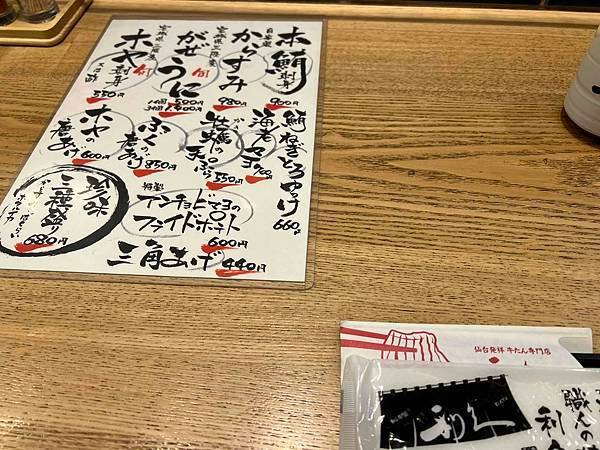 本鮪刺身
900円
自家製
からすみ
980円
宮城県三陸産
がぜうに
1個 500円
3個 1,400円
宮城県三陸産
ホヤ刺身
550円
鮪ねぎとろゆっけ
660円
海老マヨ
700円
牡蠣の天ぷら
550円
ふぐの唐あげ
850円
ホヤの唐あげ
600円
特製
アンチョビマヨの
フライドポテト
600円
珍味
三種盛り
680円
三角あげ 440円
仙台発祥 牛たん専門店
利久
職人の
利